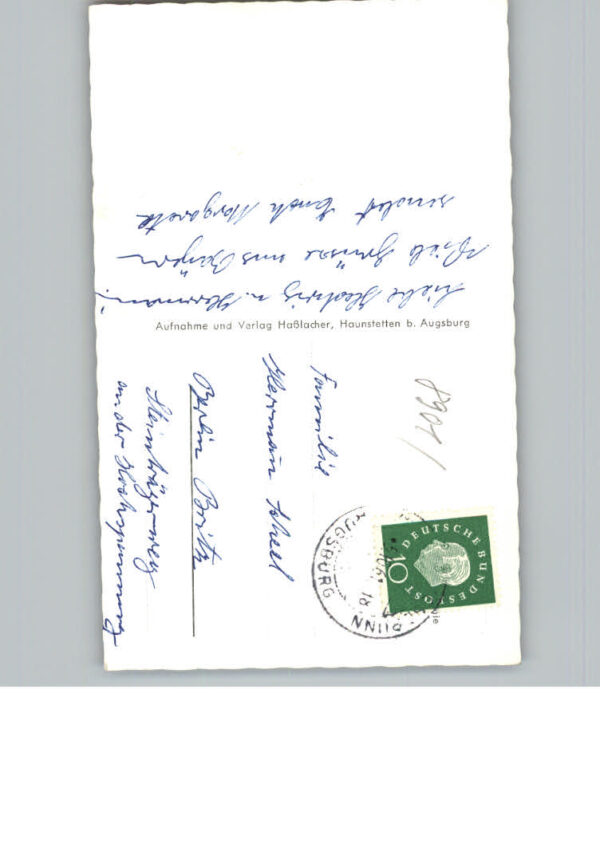 Liebe Hedwig u. Hermann!
Viele Grüsse aus Bayern
sendet Euch Margarete
Aufnahme und Verlag Haßlacher, Haunstetten b. Augsburg
Familie
Hermann Scheel
Berlin Britz
an der Hochspannung
DEUTSCHE BUNDESPOST
10
AUGSBURG